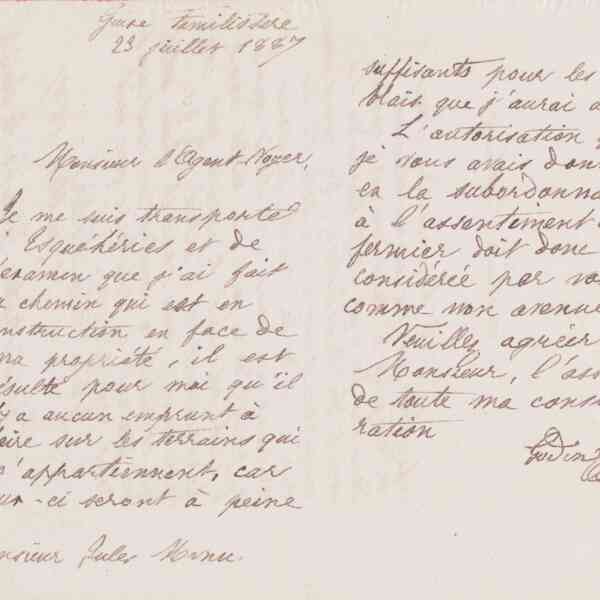 Guise Familistère
23 juillet 1887
Monsieur l'Agent-Voyer,
Je me suis transporté
Esquéhéries et de
examen que j'ai fait
chemin qui est en
nstruction en face de
ma propriété, il est
ésulté pour moi qu'il
y a aucun emprunt à
aire sur les terrains qui
m'appartiennent, car
ux-ci seront à peine
onsieur Jules Menu.
suffisants pour les
blais que j'aurai a
L'autorisation q
je vous avais don
en la subordonna
à l'assentiment
fermier doit donc
considérée par vo
comme non avenue
Veuillez agréer
Monsieur, l'ass
de toute ma consi
ration
Godin